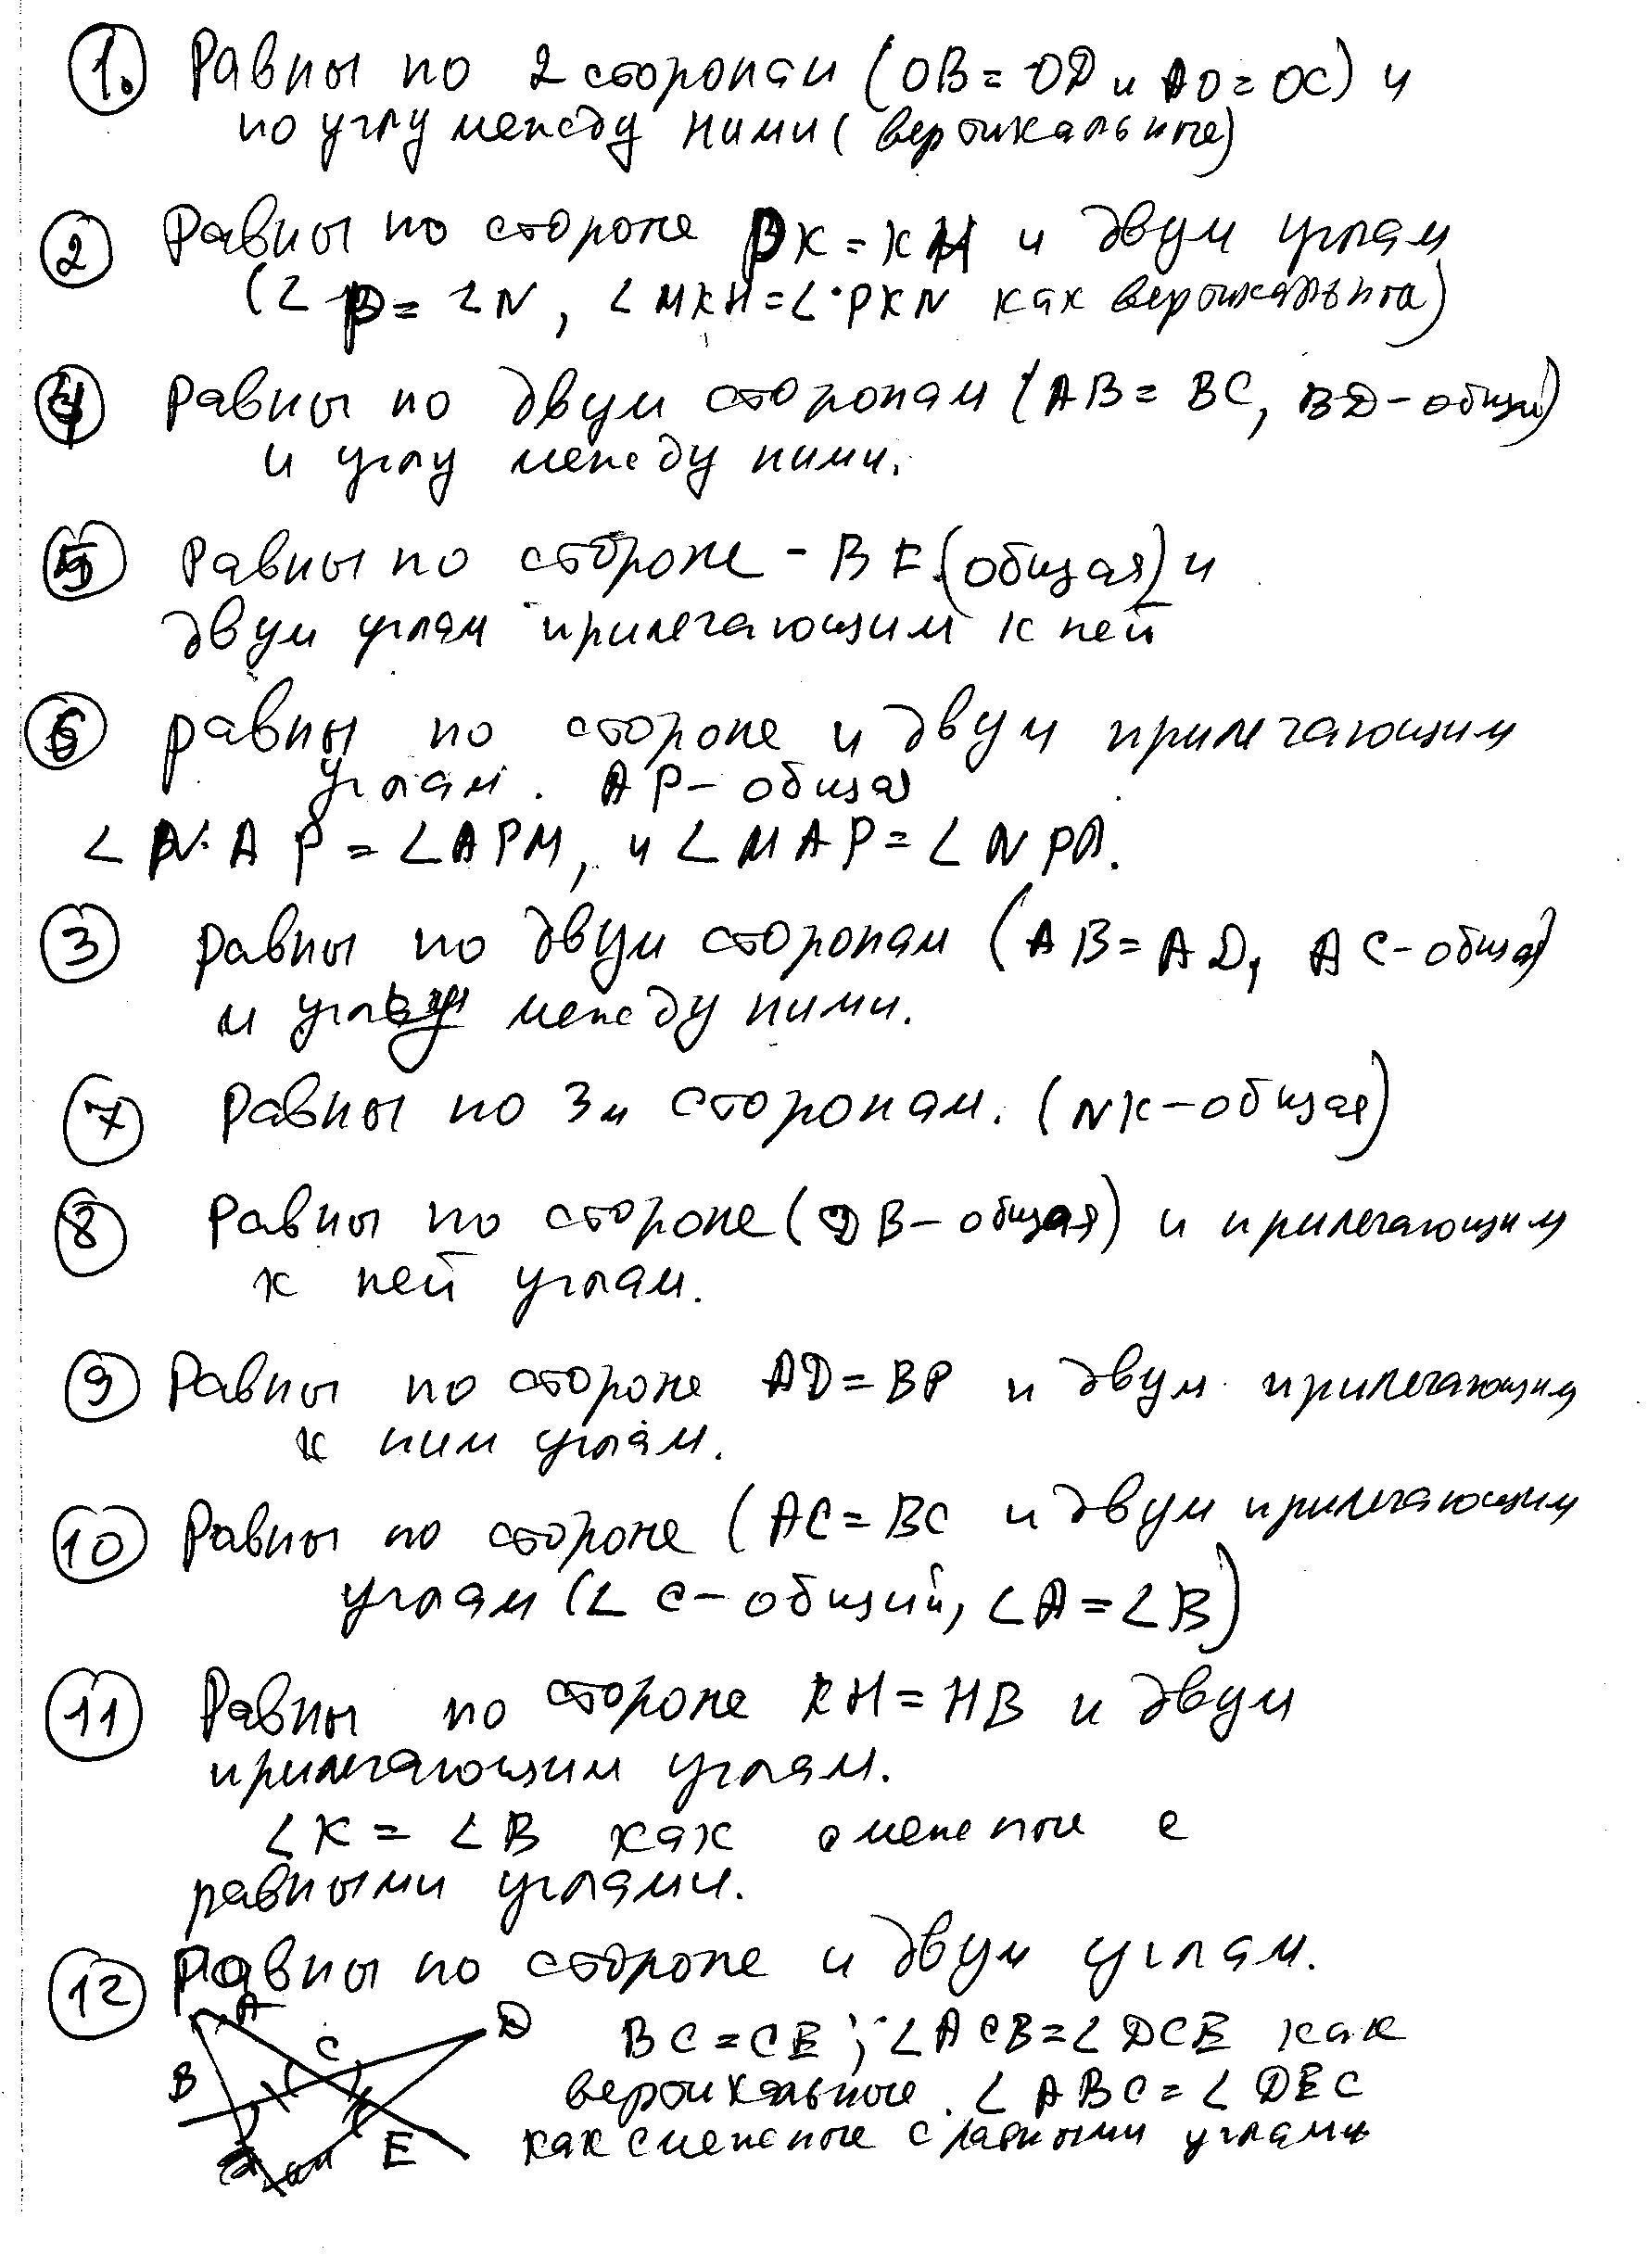 1. Равны по 2 сторонам (OB = OD и AO = OC) и
по углу между ними (вертикальные)
2 Равны по стороне PK = KH и двум углам
(∠P = ∠N, ∠MKH = ∠PKN как вертикальные)
4 Равны по двум сторонам (AB = BC, BD - общая)
и углу между ними.
5 Равны по стороне - BF (общая) и
двум углам прилегающим к ней
6 равны по стороне и двум прилегающим
углам. AP - общая
∠NAP = ∠APM, и ∠MAP = ∠NPA.
3 равны по двум сторонам (AB = AD, AC - общая)
и углу между ними.
7 Равны по 3м сторонам. (NK - общая)
8 Равны по стороне (DB - общая) и прилегающим
к ней углам.
9 Равны по стороне AD = BP и двум прилегающим
к ним углам.
10 Равны по стороне (AC = BC и двум прилегающим
углам (∠C - общий, ∠A = ∠B)
11 Равны по стороне KH = HB и двум
прилегающим углам.
∠K = ∠B как смежные с
равными углами.
12 Равны по стороне и двум углам.
A
D
C
B
E
BC = CE; ∠ACB = ∠DCE как
вертикальные. ∠ABC = ∠DEC
как смежные с равными углами